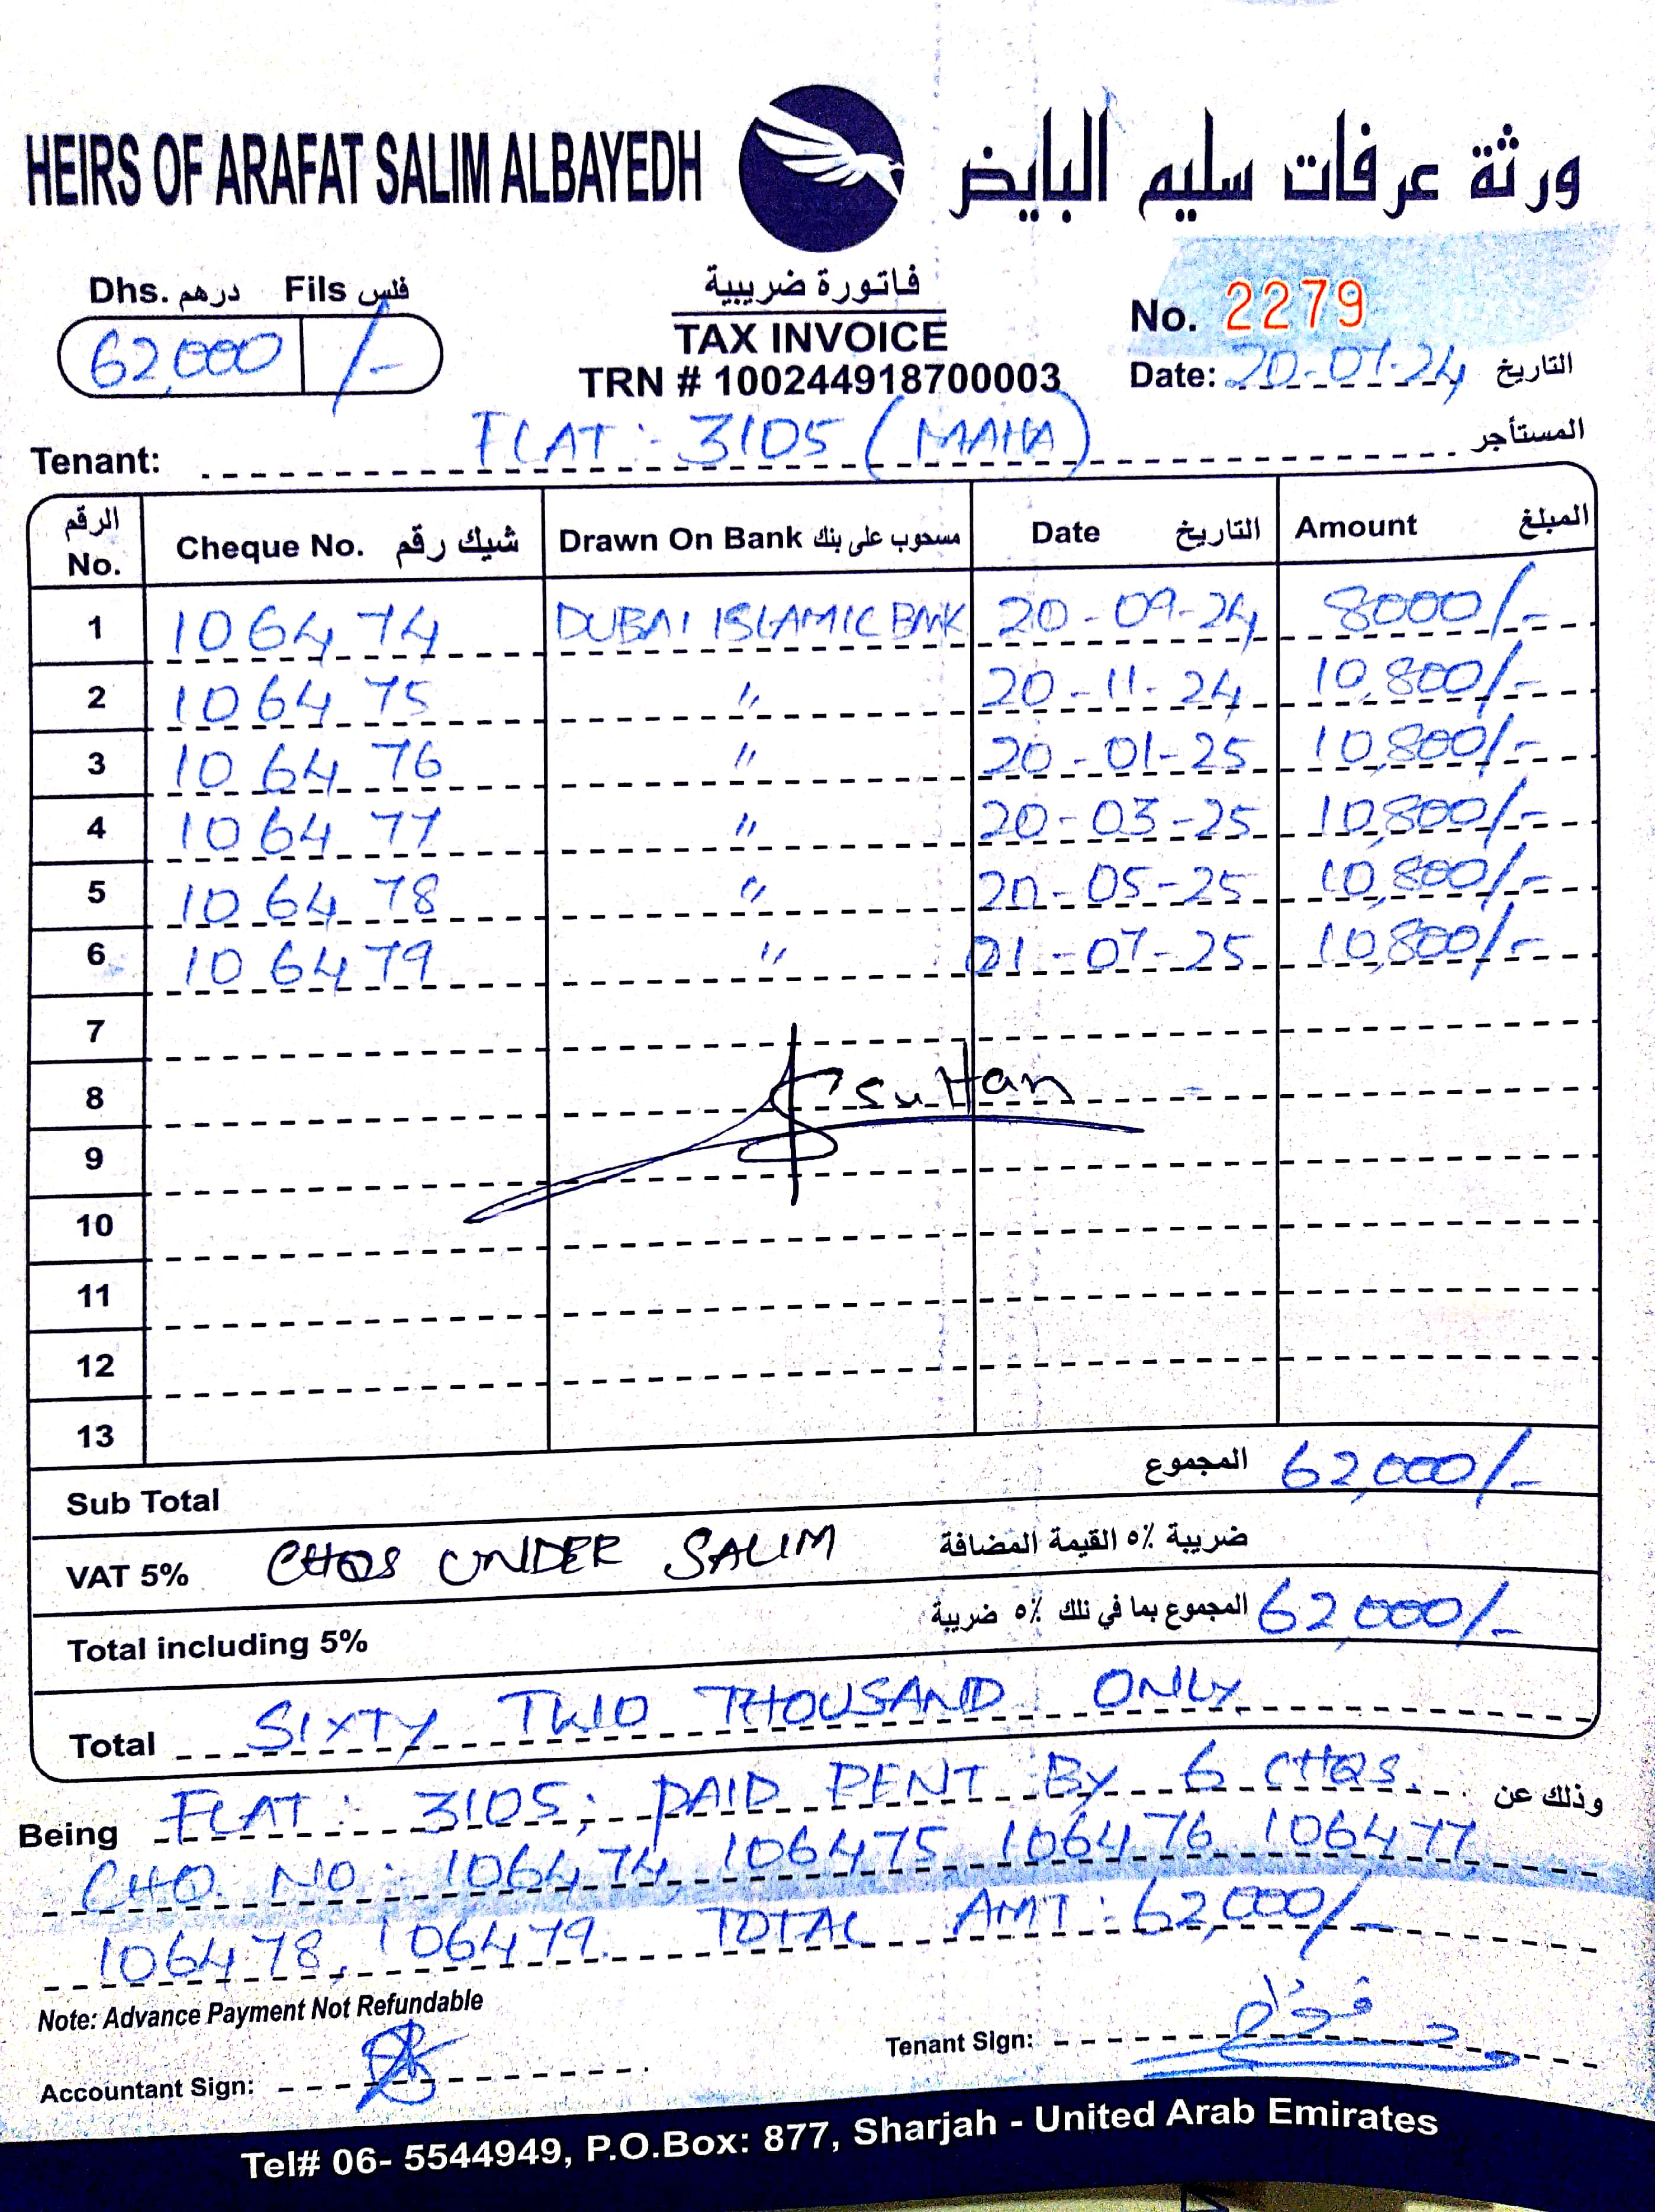 HEIRS OF ARAFAT SALIM ALBAYEDH ورثة عرفات سليم البايض
Dhs. درهم Fils فلس
62,000 /-
فاتورة ضريبية
TAX INVOICE
TRN # 100244918700003
No. 2279
Date: 20-07-24 التاريخ
Tenant: FLAT:- 3105 (MAHA) المستأجر
الرقم No. Cheque No. شيك رقم Drawn On Bank مسحوب على بنك Date التاريخ Amount المبلغ
1 106474 DUBAI ISLAMIC BNK 20-09-24 8000/-
2 106475 " 20-11-24 10,800/-
3 106476 " 20-01-25 10,800/-
4 106477 " 20-03-25 10,800/-
5 106478 " 20-05-25 10,800/-
6 106479 " 21-07-25 10,800/-
7
8 Sultan
9
10
11
12
13
Sub Total المجموع 62,000/-
VAT 5% CHQS UNDER SALIM ضريبة ٥٪ القيمة المضافة
Total including 5% المجموع بما في ذلك ٥٪ ضريبة 62,000/-
Total SIXTY TWO THOUSAND ONLY
Being FLAT: 3105; PAID RENT BY 6 CHQS. وذلك عن
CHQ. NO: 106474, 106475 106476 106477,
106478, 106479. TOTAL AMT: 62,000/-
Note: Advance Payment Not Refundable
Accountant Sign:
Tenant Sign:
Tel# 06- 5544949, P.O.Box: 877, Sharjah - United Arab Emirates